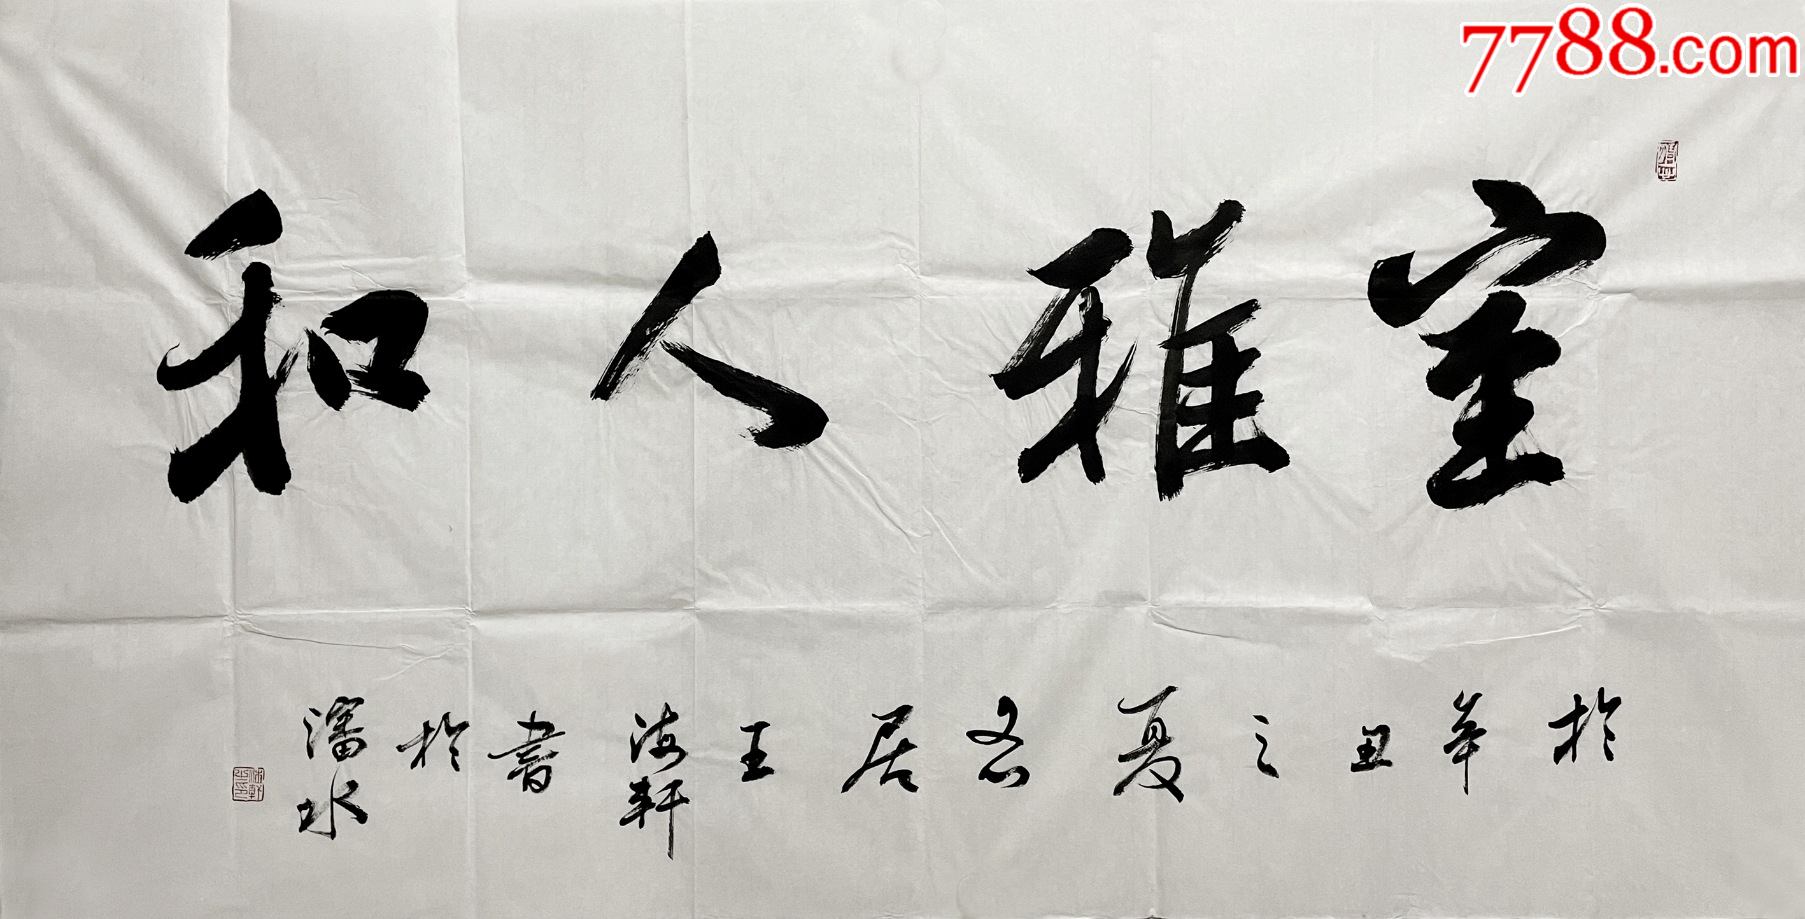 7788.com
室雅人和
於辛丑之夏吝居王海轩書於
瀋水